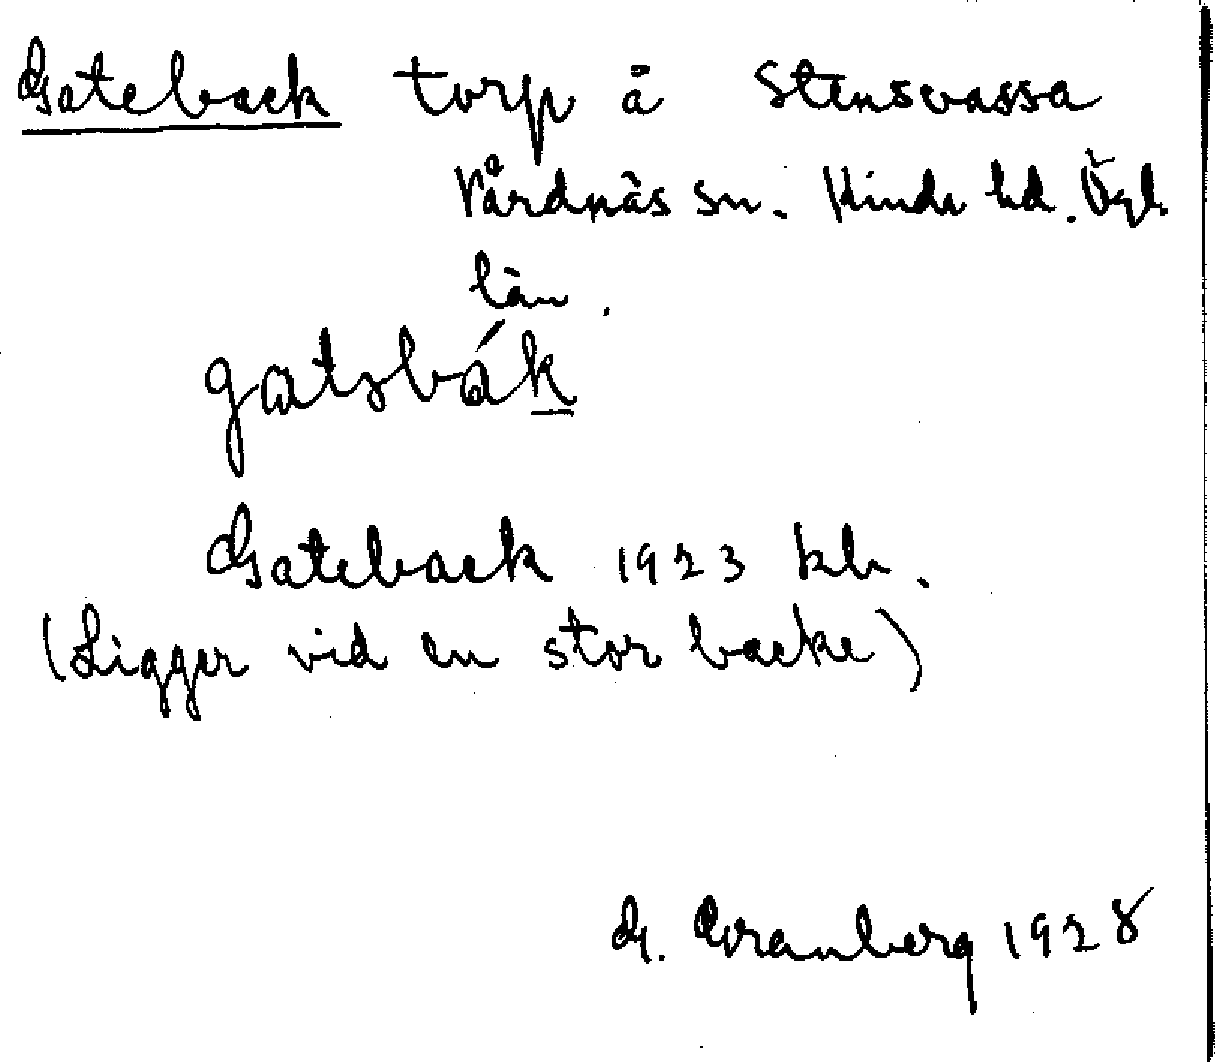 Gateback torp å Stensvassa
Vårdnäs sn. Kinda hd. Ögl.
län.
gatəbák
Gateback 1923 kb.
(Ligger vid en stor backe)
G. Granberg 1928